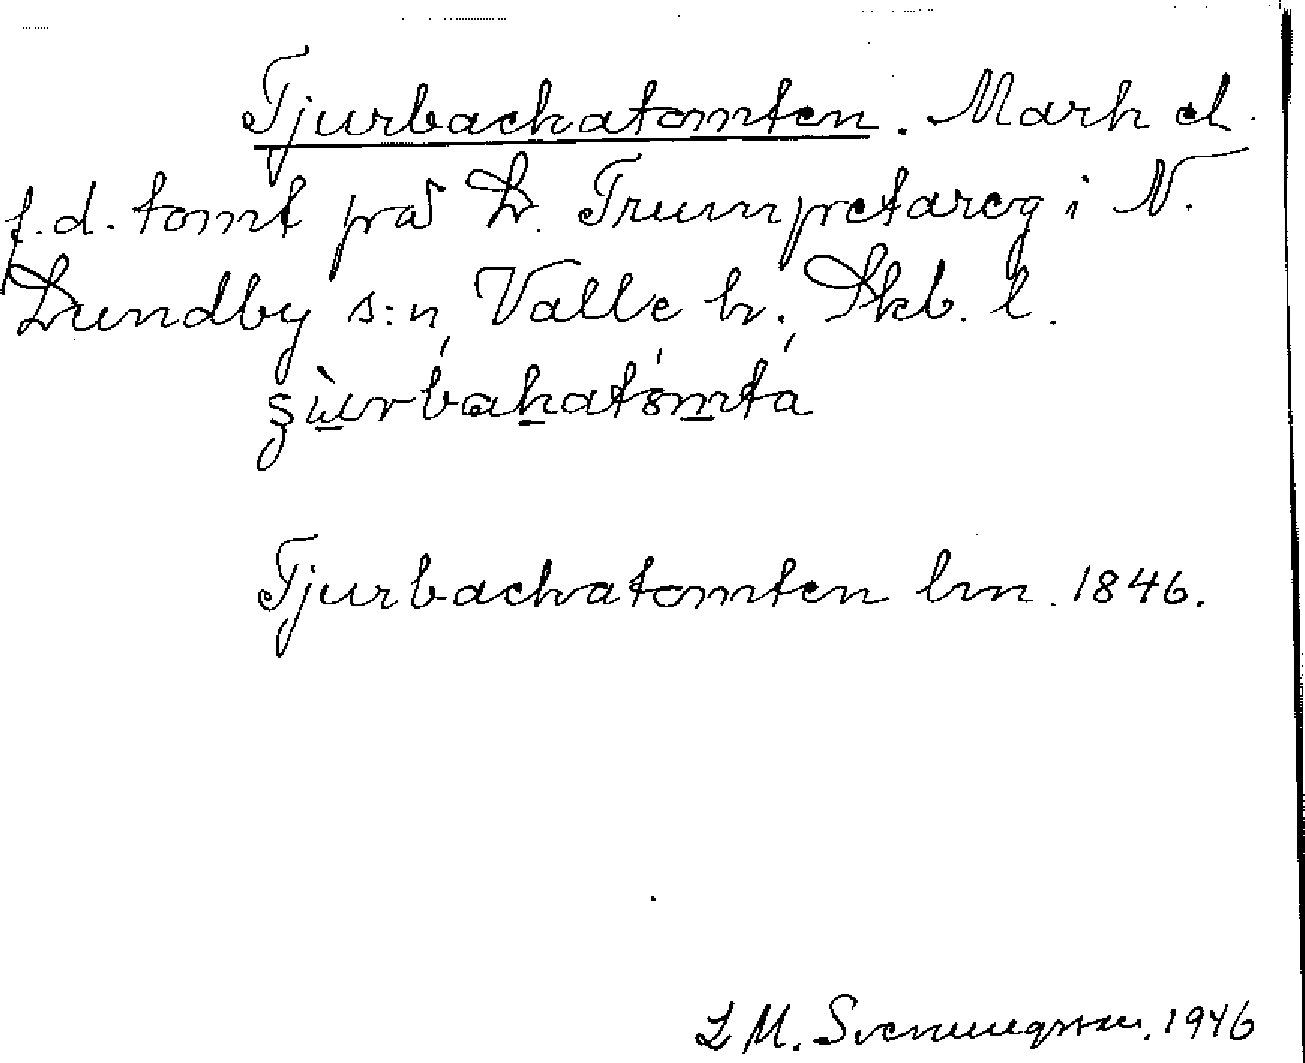 Tjurbackatomten. Mark el.
f.d. tomt på L. Trumpetareg i N.
Lundby s:n, Valle hr., Skb. l.
Tjurbackatomten lm. 1846.
L M. Svenungsson. 1946